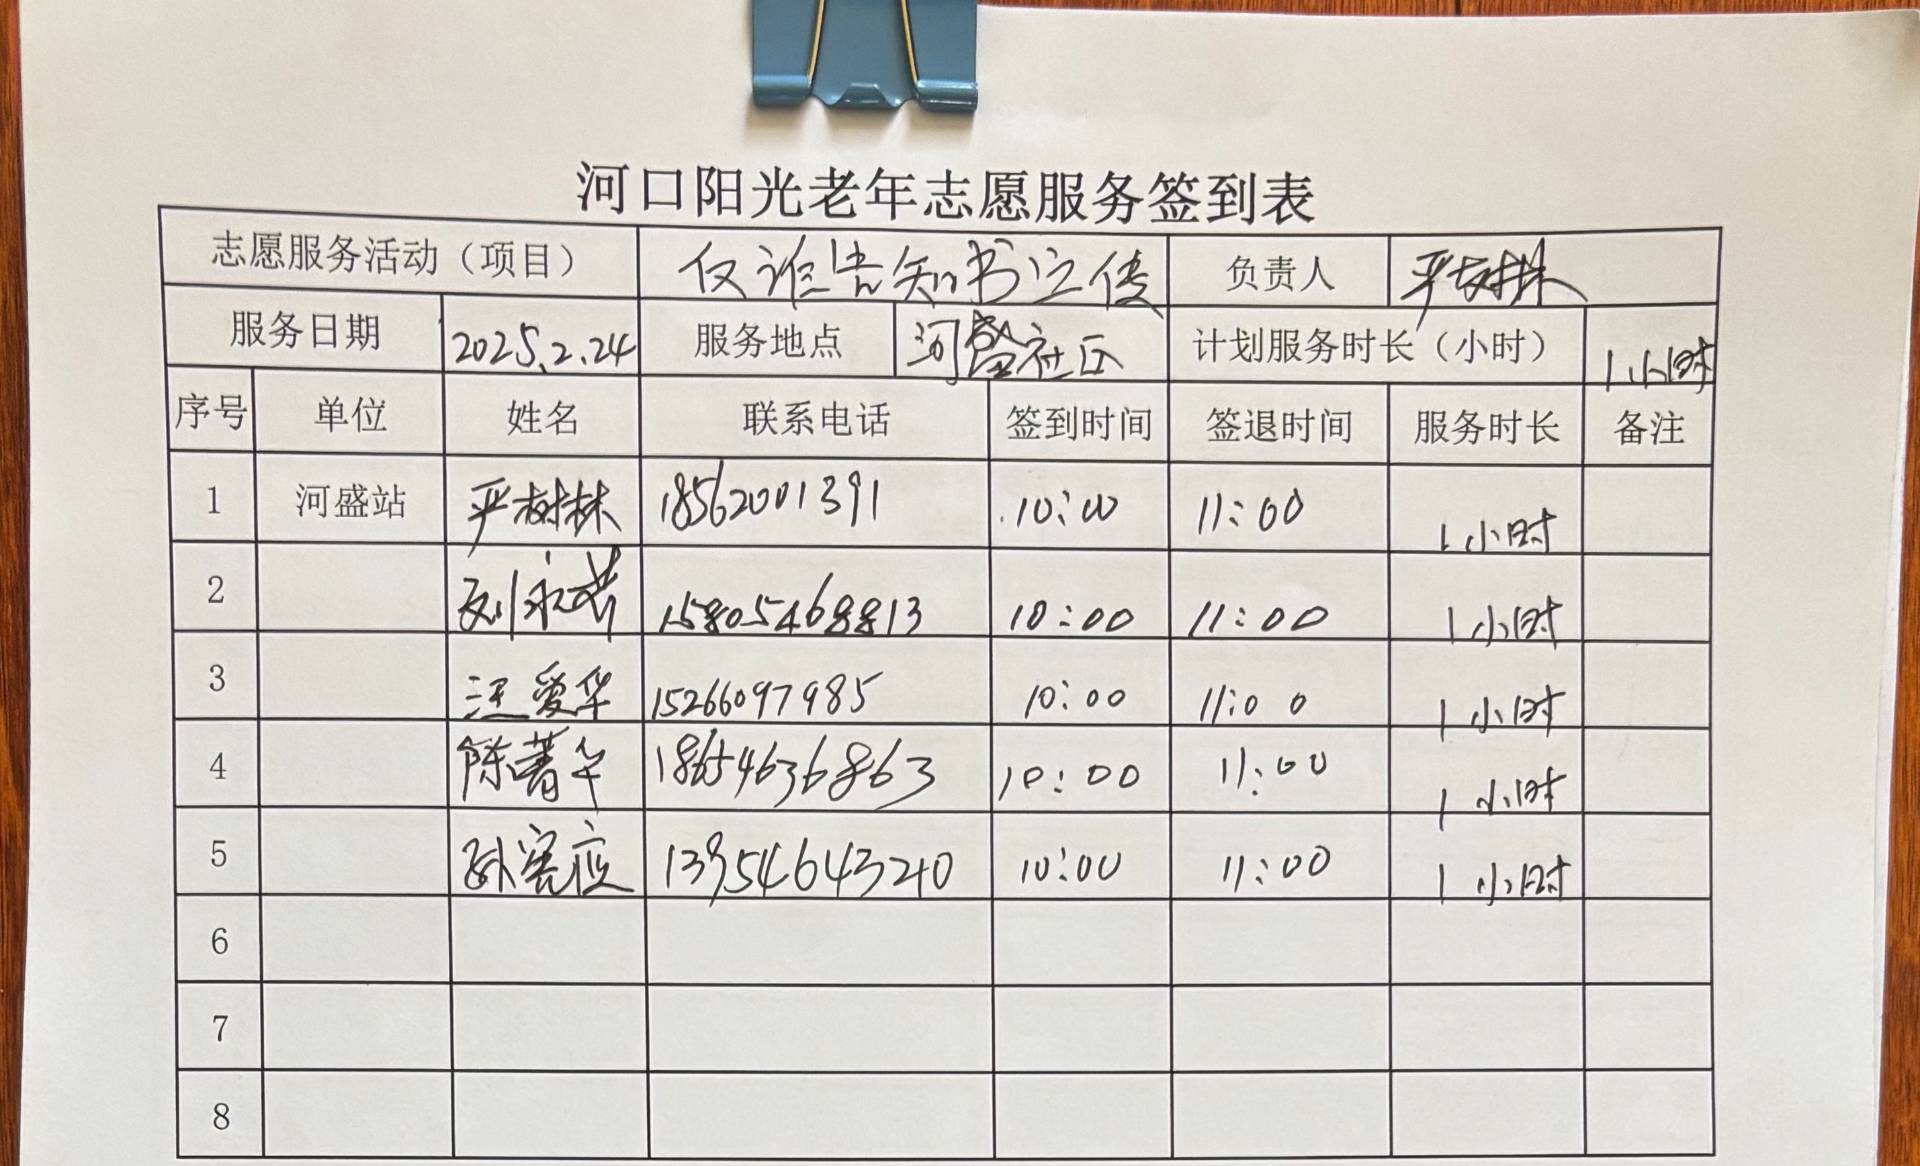 河口阳光老年志愿服务签到表
志愿服务活动（项目） 告知书 负责人 严树林
服务日期 2025.2.24 服务地点 河盛社区 计划服务时长（小时） 1小时
序号 单位 姓名 联系电话 签到时间 签退时间 服务时长 备注
1 河盛站 严树林 18562001391 10:00 11:00 1小时
2 刘永 15805468813 10:00 11:00 1小时
3 汪爱华 15266097985 10:00 11:00 1小时
4 陈菁华 18654636863 10:00 11:00 1小时
5 孙 13954643240 10:00 11:00 1小时
6
7
8